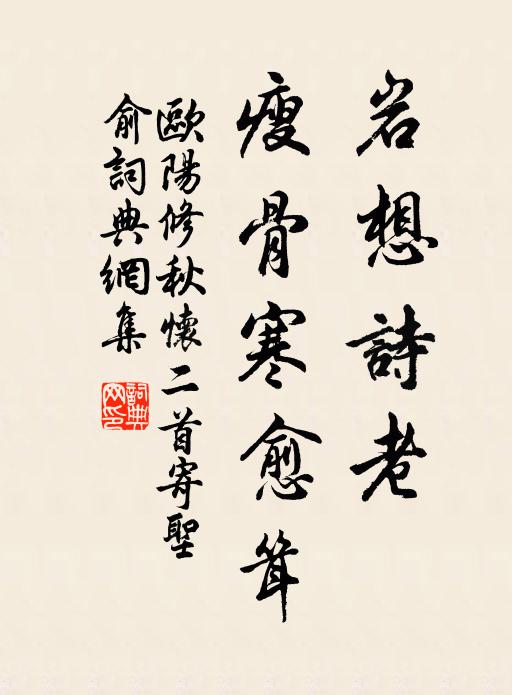 岩想詩老
瘦骨寒愈聳
歐陽修秋懷二首寄聖
俞詞典網集
詞典網印